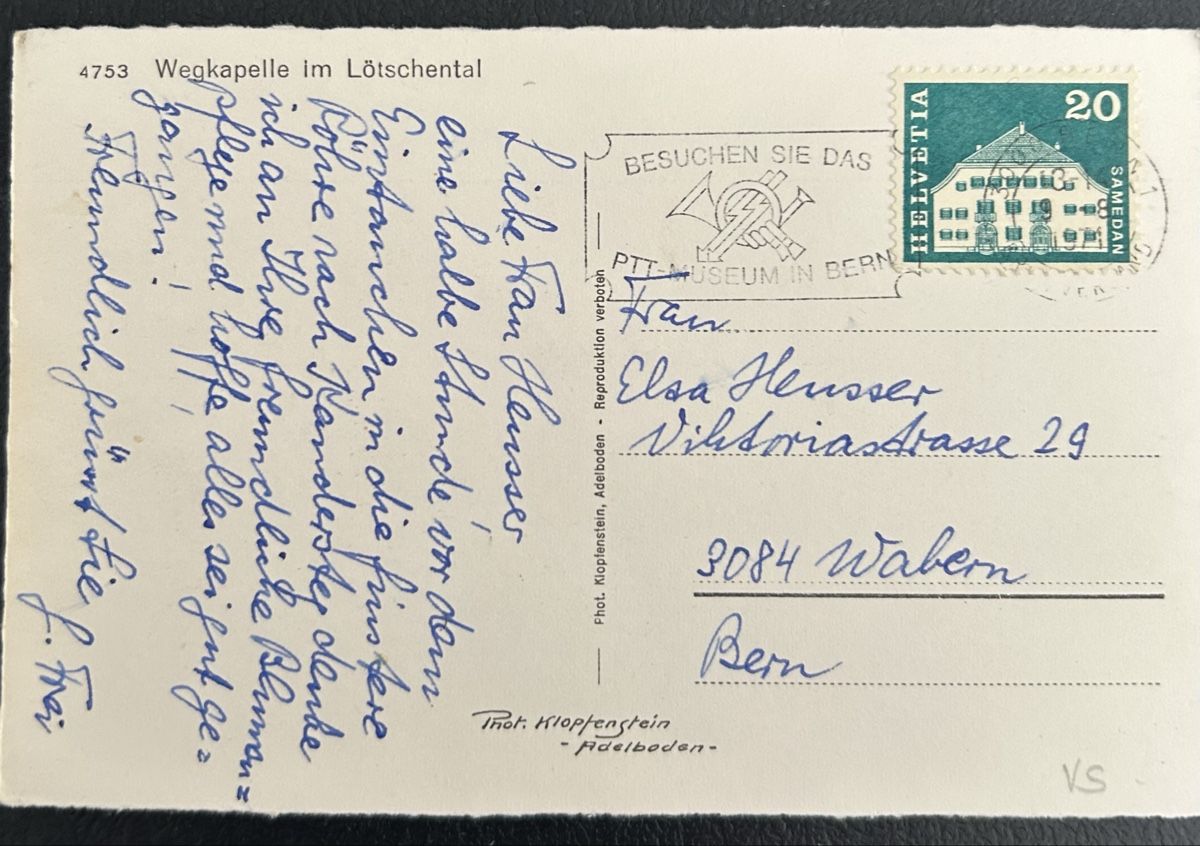 4753 Wegkapelle im Lötschental
Liebe Frau Heusser
eine halbe Stunde vor dem
Eintauchen in die finstere
Röhre nach Kandersteg denke
ich an Ihre freundliche Blumen=
pflege und hoffe alles sei gut ge=
gangen!
Freundlich grüsst Sie
F. Frei
Phot. Klopfenstein, Adelboden - Reproduktion verboten
BESUCHEN SIE DAS
PTT-MUSEUM IN BERN
HELVETIA
20
SAMEDAN
Frau
Elsa Heusser
Viktoriastrasse 29
3084 Wabern
Bern
Phot. Klopfenstein
- Adelboden -
VS